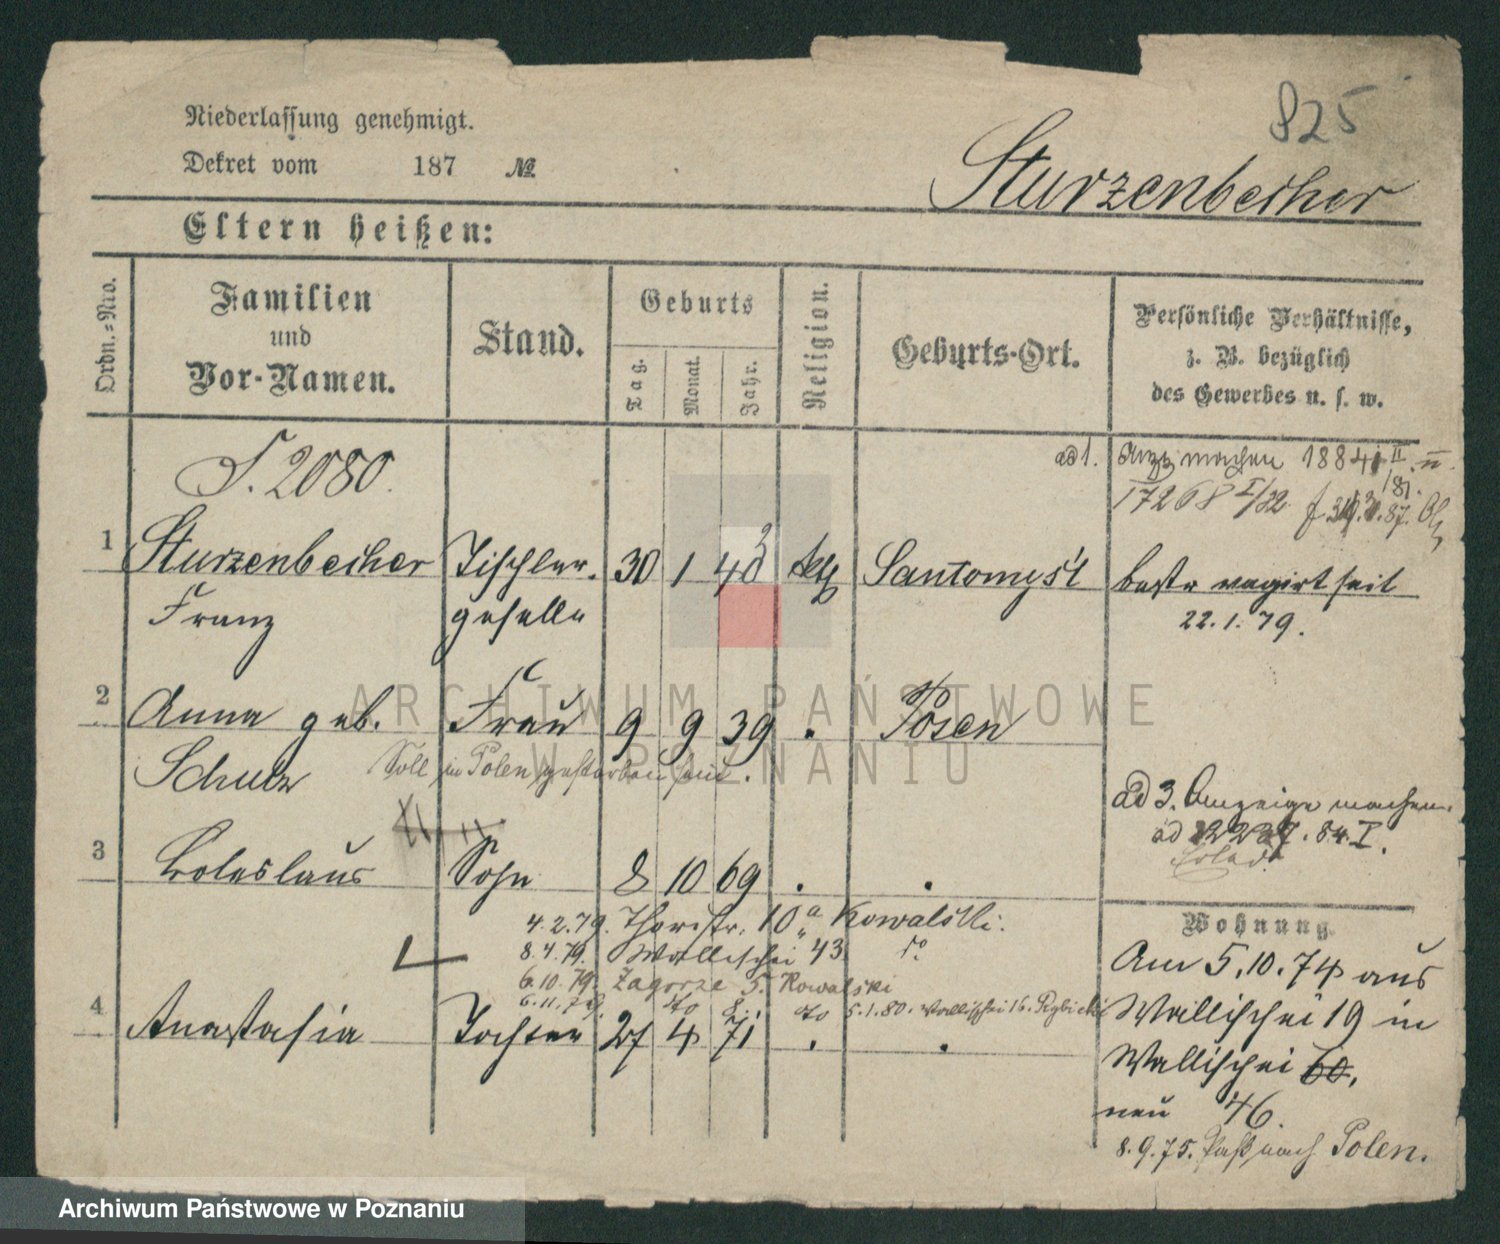 825
Niederlassung genehmigt.
Dekret vom 187 №
Sturzenbecher
Eltern heißen:
Ordn.=Nro.
Familien und Vor-Namen.
Stand.
Geburts
Tag. Monat. Jahr.
Religion.
Geburts-Ort.
Persönliche Verhältnisse,
z. B. bezüglich
des Gewerbes u. s. w.
S. 2080.
ad 1. Anz machen 1884 II
17268 I/82
1 Sturzenbecher Tischler. 30 1 43 kth Santomyśl
Franz geselle
seit
22.1.79.
2 Anna geb. Frau 9 9 39 . Posen
Schulz
Soll in Polen gestorben sein.
ad 3. Anzeige machen.
ad 2237.84.I.
3 Boleslaus Sohn 8 10 69 . .
4.2.79. Thorstr. 10a Kowalski.
8.4.79. Wallischei 43
6.10.79. Zagorze 5. Kowalski
6.11.79. do 2. do 5.1.80. Wallischei 16. Rybicki
4 Anastasia Tochter 27 4 71 . .
Wohnung
Am 5.10.74 aus
Wallischei 19 in
Wallischei 60,
neu 46.
8.9.75. Paß nach Polen.
ARCHIWUM PAŃSTWOWE
W POZNANIU
Archiwum Państwowe w Poznaniu